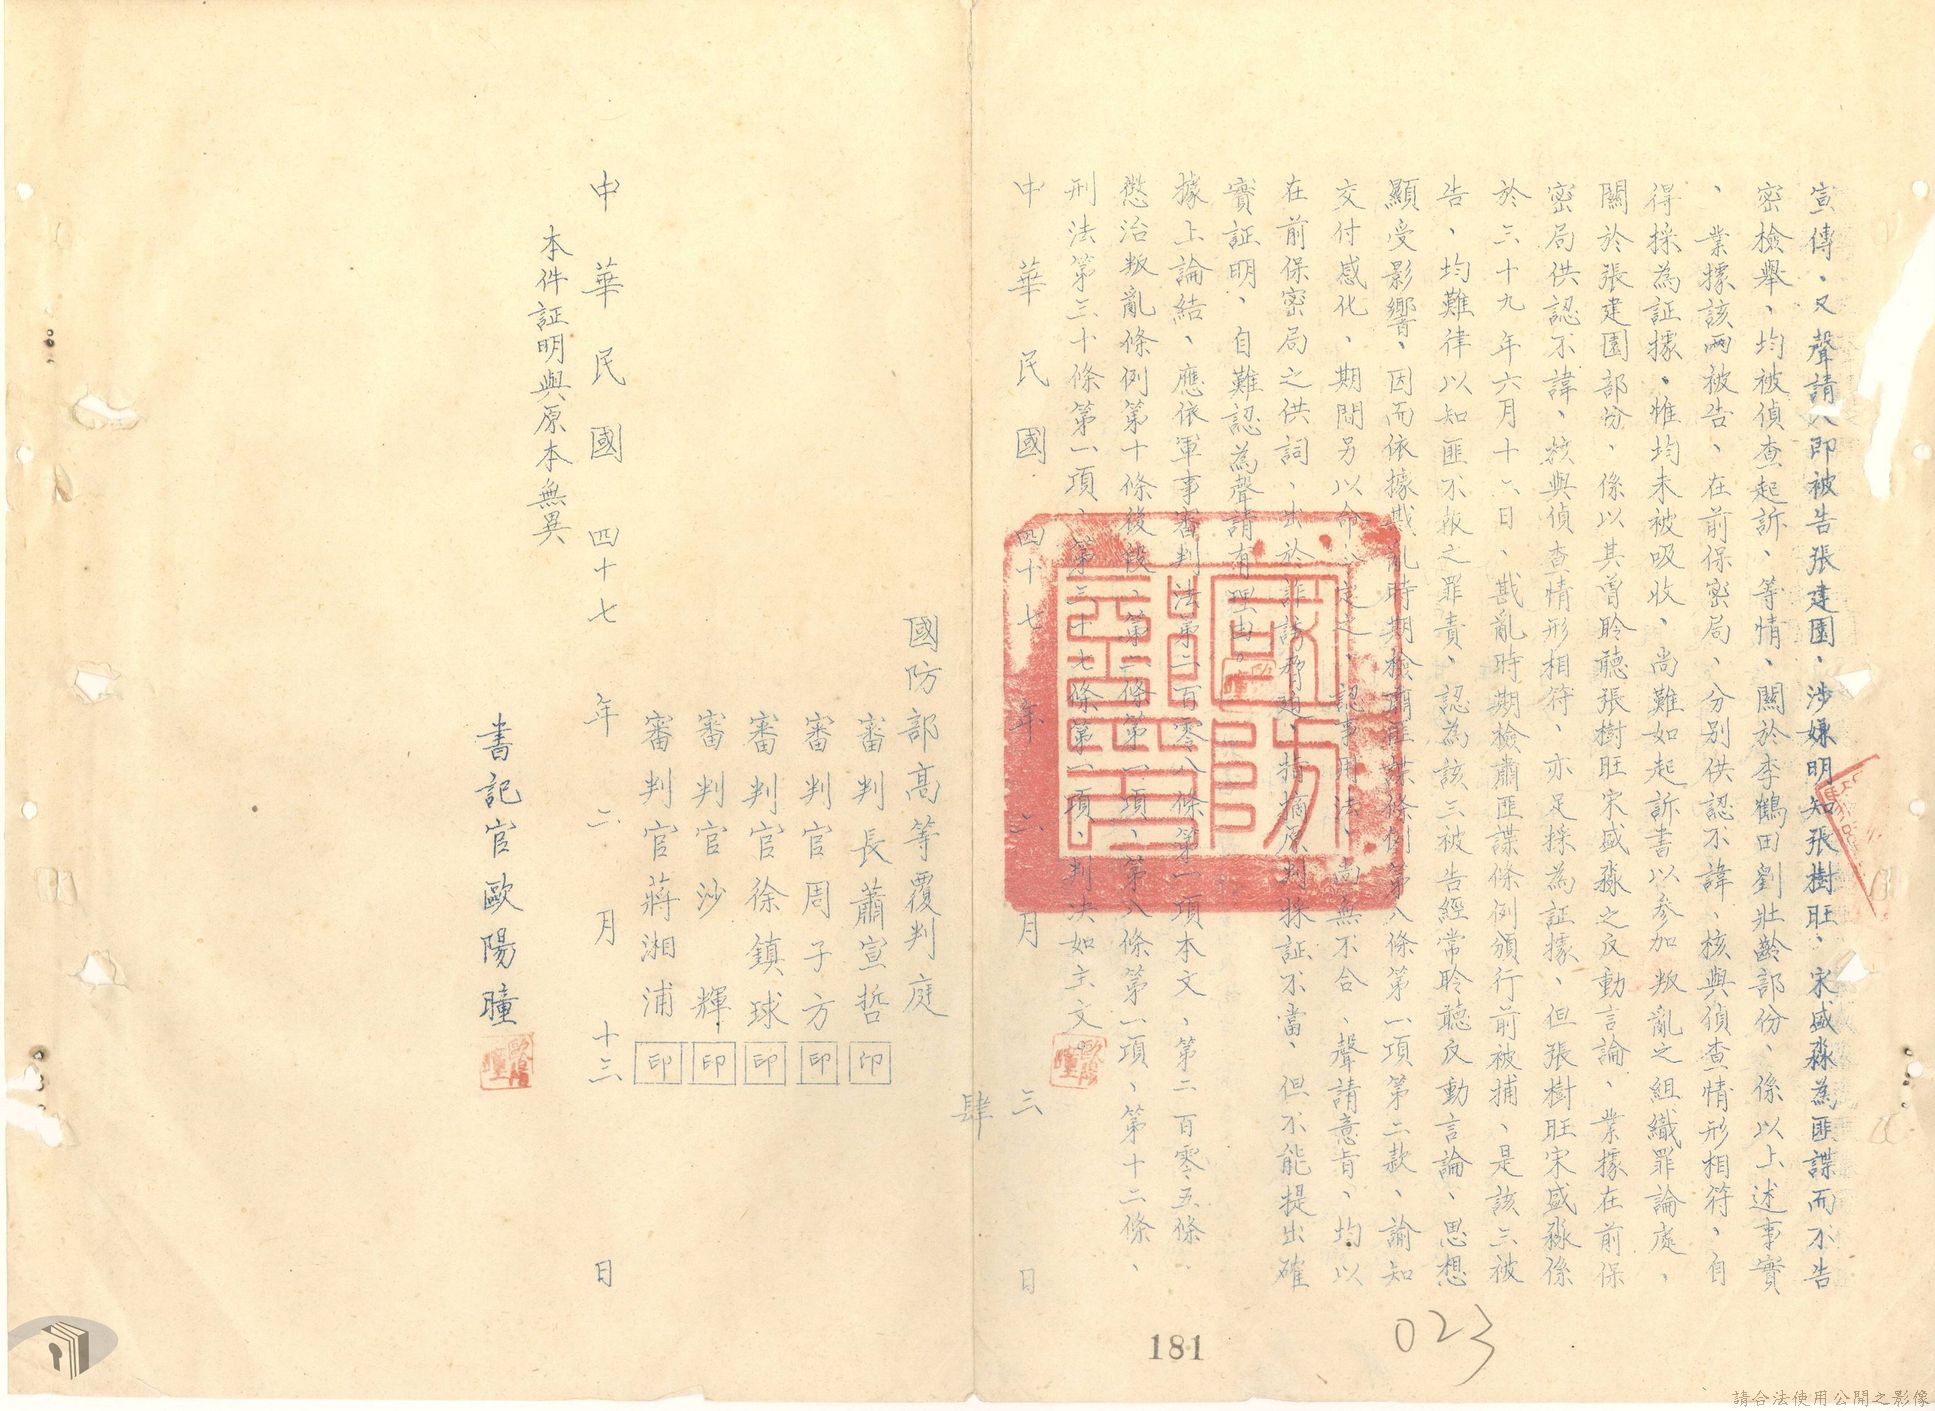 宣傳、又聲請人即被告張建園、涉嫌明知張樹旺、宋盛淼為匪諜而不告
密檢舉、均被偵查起訴、等情、關於李鶴田劉壯齡部份、係以上述事實
、業據該兩被告、在前保密局、分別供認不諱、核與偵查情形相符、自
得採為証據、惟均未被吸收、尚難如起訴書以參加叛亂之組織罪論處、
關於張建園部份、係以其曾聆聽張樹旺宋盛淼之反動言論、業據在前保
密局供認不諱、核與偵查情形相符、亦足採為証據、但張樹旺宋盛淼係
於三十九年六月十六日、戡亂時期檢肅匪諜條例頒行前被捕、是該三被
告、均難律以知匪不報之罪責、認為該三被告經常聆聽反動言論、思想
顯受影響、因而依據戡亂時期檢肅匪諜條例第八條第一項第二款、諭知
交付感化、期間另以命令定之、認事用法、尚無不合、聲請意旨、均以
在前保密局之供詞、出於詐誘為題、指摘原判採証不當、但不能提出確
實証明、自難認為聲請有理由。
據上論結、應依軍事審判法第二百零八條第一項本文、第二百零五條、
懲治叛亂條例第十條後段、第二條第一項、第八條第一項、第十二條、
刑法第三十條第一項、第三十七條第一項、判決如主文。
中華民國四十七年二月三日
肆
國防部高等覆判庭
審判長蕭宣哲 印
審判官周子方 印
審判官徐鎮球 印
審判官沙輝 印
審判官蔣湘浦 印
中華民國四十七年二月十三日
本件証明與原本無異
書記官歐陽瞳
181
023
請合法使用公開之影像